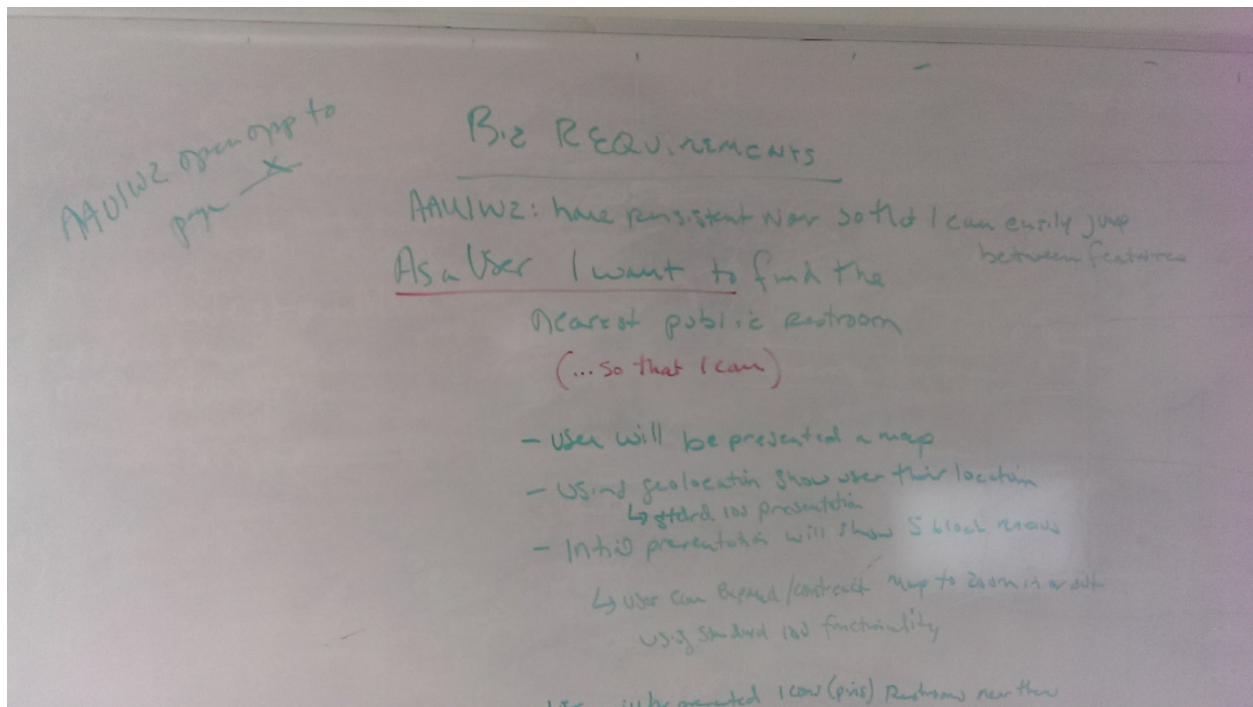 AAUIW2 open app to
page X
Biz REQUIREMENTS
AAUIW2: have persistent nav so that I can easily jump
between features
As a User I want to find the
nearest public restroom
(...so that I can)
- user will be presented a map
- Using geolocation show user their location
↳ stdrd ios presentation
- Initial presentation will show 5 block radius
↳ user can expand/contract map to zoom in or out
using standard ios functionality
presented icons (pins) Restrooms near them